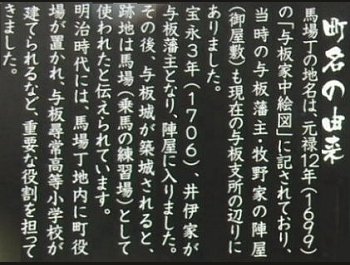 町名の由来
馬場丁の地名は、元禄12年(1699)
の「与板家中絵図」に記されており、
当時の与板藩主・牧野家の陣屋
(御屋敷)も現在の与板支所の辺りに
ありました。
宝永3年(1706)、井伊家が
与板藩主となり、陣屋に入りました。
その後、与板城が築城されると、
跡地は馬場(乗馬の練習場)として
使われたと伝えられています。
明治時代には、馬場丁地内に町役
場が置かれ、与板尋常高等小学校が
建てられるなど、重要な役割を担って
きました。